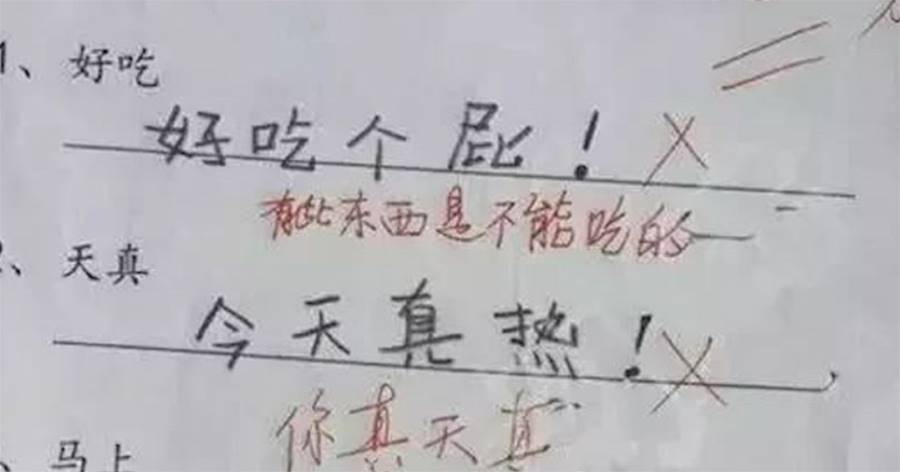 1、好吃
好吃个屁！
有些东西是不能吃的
2、天真
今天真热！
你真天真
、马上